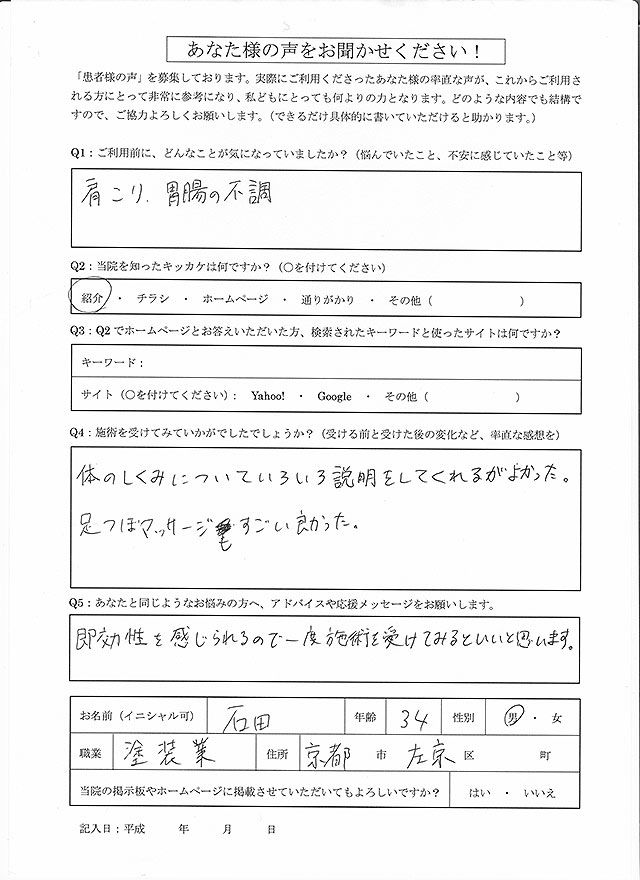 あなた様の声をお聞かせください！
「患者様の声」を募集しております。実際にご利用くださったあなた様の率直な声が、これからご利用さ
れる方にとって非常に参考になり、私どもにとっても何よりの力となります。どのような内容でも結構で
すので、ご協力よろしくお願いします。（できるだけ具体的に書いていただけると助かります。）
Q1：ご利用前に、どんなことが気になっていましたか？（悩んでいたこと、不安に感じていたこと等）
肩こり、胃腸の不調
Q2：当院を知ったキッカケは何ですか？（○を付けてください）
紹介 ・ チラシ ・ ホームページ ・ 通りがかり ・ その他（ ）
Q3：Q2でホームページとお答えいただいた方、検索されたキーワードと使ったサイトは何ですか？
キーワード：
サイト（○を付けてください）： Yahoo! ・ Google ・ その他（ ）
Q4：施術を受けてみていかがでしたでしょうか？（受ける前と受けた後の変化など、率直な感想を）
体のしくみについていろいろ説明をしてくれるがよかった。
足つぼマッサージもすごい良かった。
Q5：あなたと同じようなお悩みの方へ、アドバイスや応援メッセージをお願いします。
即効性を感じられるので一度施術を受けてみるといいと思います。
お名前（イニシャル可） 石田 年齢 34 性別 男 ・ 女
職業 塗装業 住所 京都 市 左京 区 町
当院の掲示板やホームページに掲載させていただいてもよろしいですか？ はい ・ いいえ
記入日：平成 年 月 日